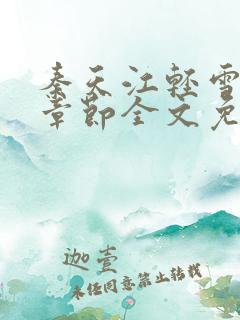 秦天江轻雪
章节全文免
迦壹
未经同意禁止转载